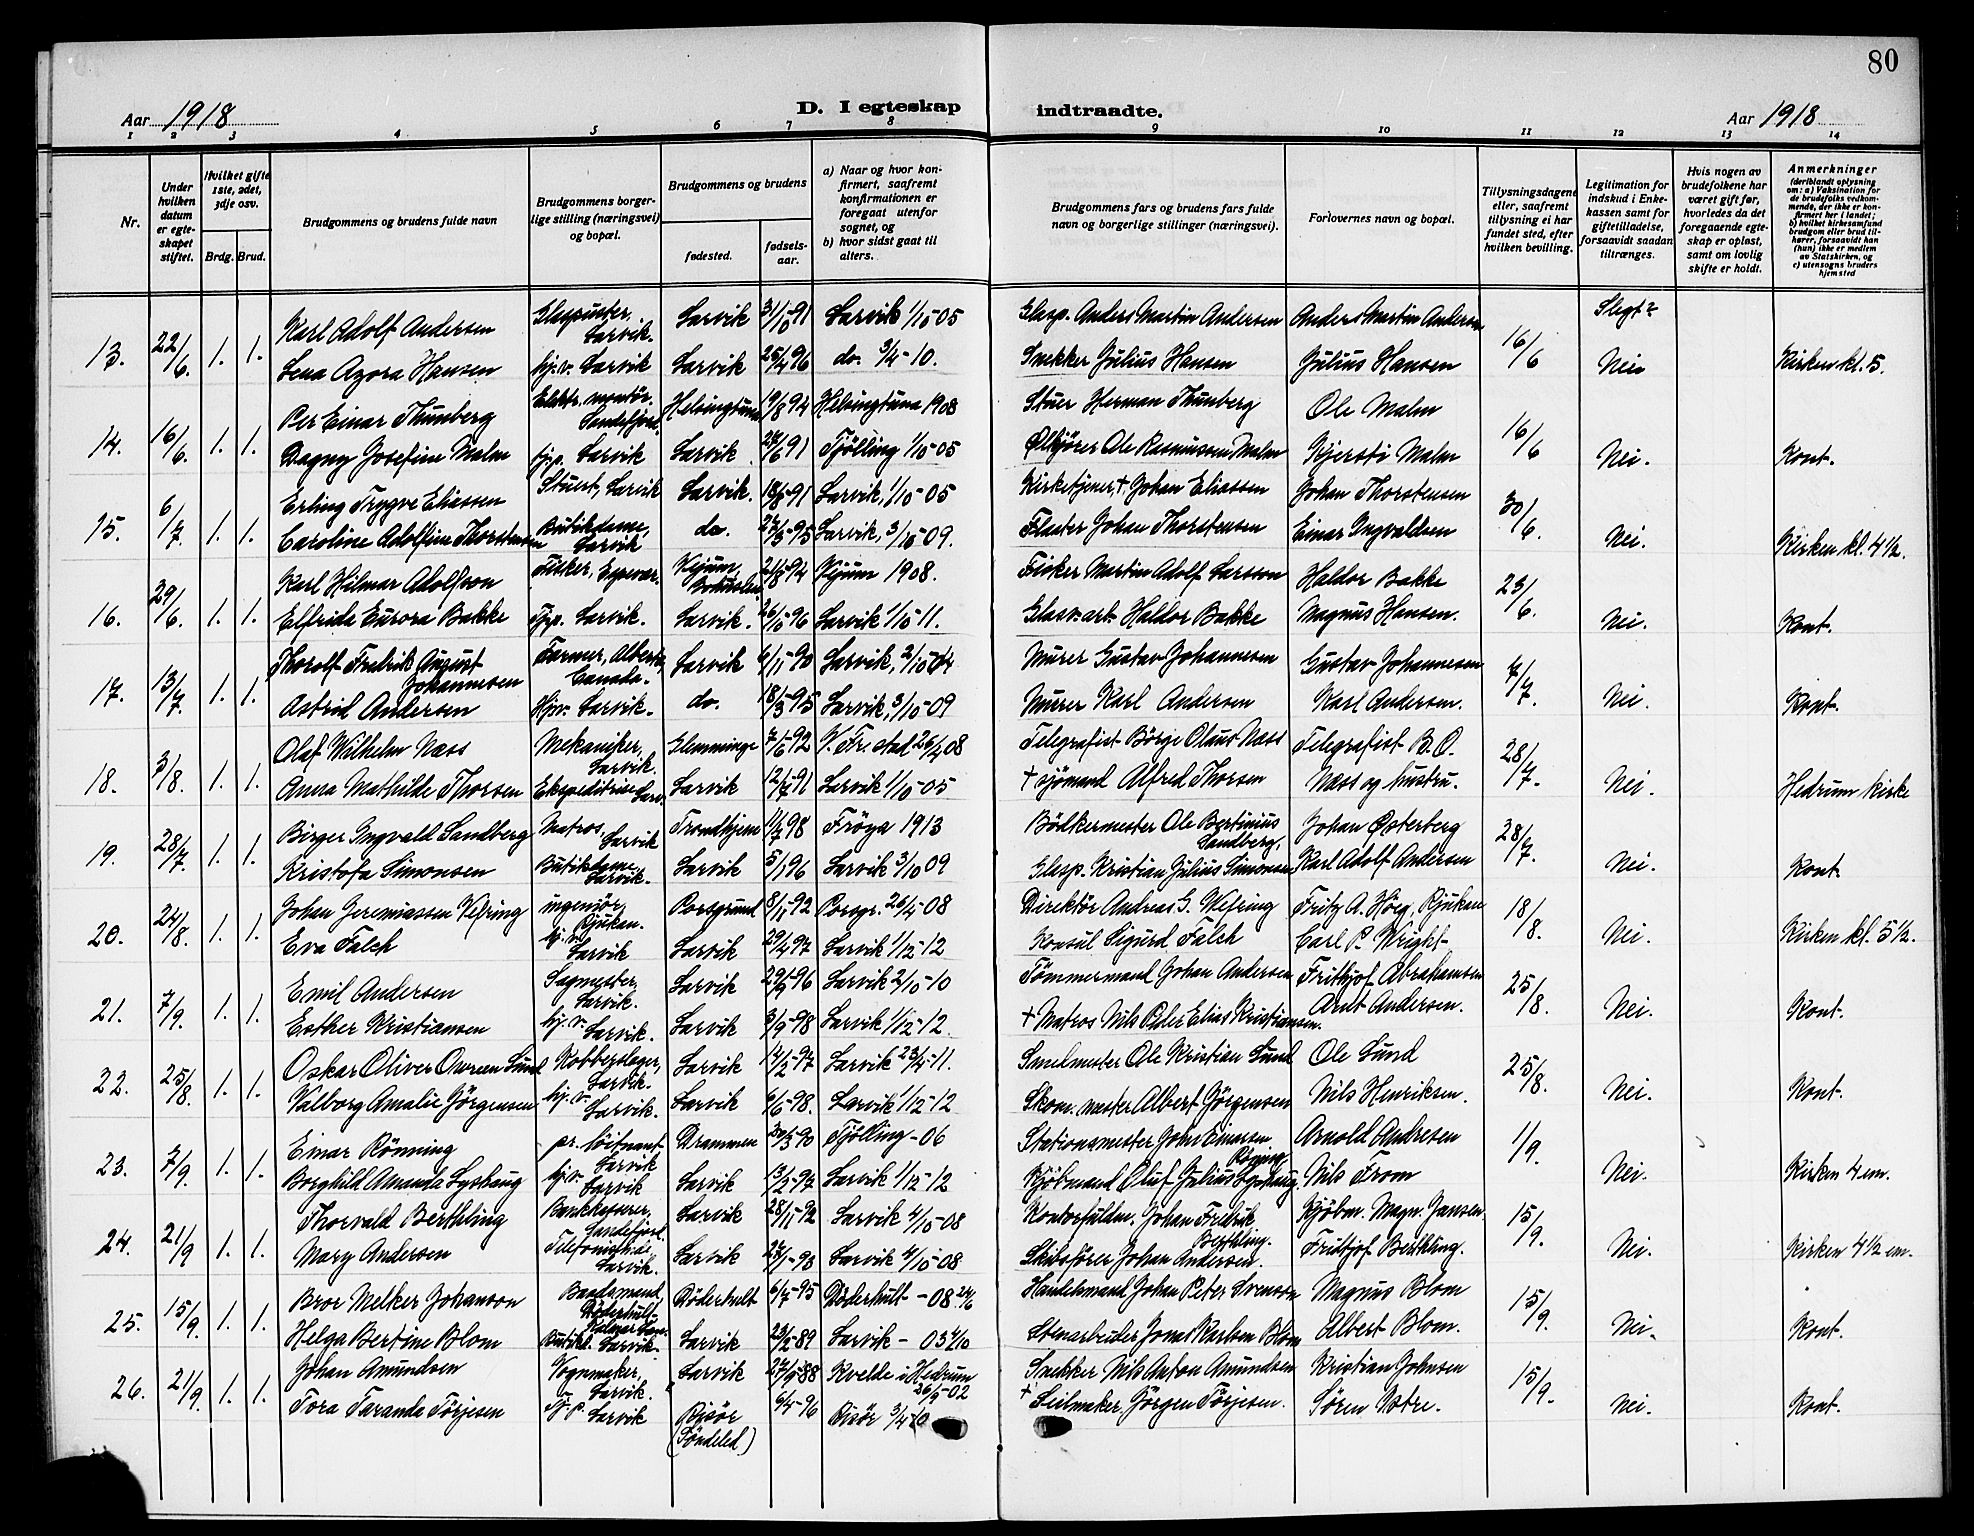 80
Aar 1918
D. I egteskap
indtraadte.
Aar 1918
1 2 3 4 5 6 7 8 9 10 11 12 13 14
Nr.
Under hvilken datum er egteskapet stiftet.
Hvilket gifte 1ste, 2det, 3dje osv.
Brdg. Brud.
Brudgommens og brudens fulde navn
Brudgommens borgerlige stilling (næringsvei) og bopæl.
Brudgommens og brudens
fødested.
fødselsaar.
a) Naar og hvor konfirmert, saafremt konfirmationen er foregaat utenfor sognet, og
b) hvor sidst gaat til alters.
Brudgommens fars og brudens fars fulde navn og borgerlige stillinger (næringsvei).
Forlovernes navn og bopæl.
Tillysningsdagene eller, saafremt tillysning ei har fundet sted, efter hvilken bevilling.
Legitimation for indskud i Enkekassen samt for giftetilladelse, forsaavidt saadan tiltrænges.
Hvis nogen av brudefolkene har været gift før, hvorledes da det foregaaende egteskap er opløst, samt om lovlig skifte er holdt.
Anmerkninger
(deriblandt oplysning om: a) Vaksination for de brudefolks vedkommende, der ikke er konfirmert her i landet; b) hvilket kirkesamfund brudgom eller brud tilhører, forsaavidt han (hun) ikke er medlem av Statskirken, og c) utensogns bruders hjemsted
Slegt?
13. 22/6. 1. 1. Karl Adolf Andersen Glaspuster, Larvik. Larvik 31/10-91 Larvik 1/10-05 Glasp. Anders Martin Andersen Anders Martin Andersen 16/6
Lena Agora Hansen hj.v. Larvik Larvik 25/4 96 do. 3/4-10. Snekker Julius Hansen Julius Hansen Nei Kirken kl. 5.
14. 16/6. 1. 1. Per Einar Thunberg Elektr. montör, Sandefjord. Helsingtuna 19/8 94 Helsingtuna 1908 Stuer Herman Thunberg Ole Malm 16/6
Dagny Josefine Malm hj.p. Larvik Larvik 91 Tjølling 1/10-05 Ølkjører Ole Rasmussen Malm Kjerstø Malm Nei. Kont.
15. 6/7. 1. 1. Erling Trygve Eliassen Stuert, Larvik Larvik. 18/8-91 Larvik, 1/10-05 Kirketjener, † Johan Eliassen Johan Thorstensen 30/6
Caroline Adolfine Thorstensen Butikdame, Larvik do. 95 Larvik, 3/10-09. Flaater Johan Thorstensen Einar Ingvaldsen Nei. Kirken kl. 4½.
16. 29/6. 1. 1. Karl Hilmar Adolfson Fisker, 94 1908. Fisker Martin Adolf Larsson Haldor Bakke 23/6
Elfrida Eurora Bakke Tj.p. Larvik. Larvik. 26/10-96 Larvik 1/10-11. Glasv.arb Haldor Bakke Magnus Hansen. Nei. Kont.
17. 13/7. 1. 1. Thorolf Fredrik August Johannesen Farmer, Alberta, Canada. Larvik 6/11-90 Larvik, 2/10-04 Murer Gustav Johannesen Gustav Johannesen 7/7
Astrid Andersen Hjv. Larvik. do. 18/3-95 Larvik, 3/10-09 Murer Karl Andersen Karl Andersen. Nei. Kont.
18. 3/8. 1. 1. Olaf Wilhelm Næss Mekaniker, Larvik. Glemminge 7/6-92 V. Fr.stad 26/4 08 Telegrafist Börge Olaus Næss Telegrafist B.O. 28/7.
Anna Mathilde Thorsen Ekspeditrise Larv. Larvik 12/7-91 Larvik 1/10-05 † sjömand Alfred Thorsen Næss og hustru. Nei. Hedrum kirke
19. 28/7 1. 1. Birger Ingvald Sandberg Matros, Larvik Trondhjem 11/7 98 Fröya 1913 Bödkermester Ole Bertinius Sandberg, Johan Østerberg 28/7.
Kristofa Simonsen Butikdame, Larvik. Larvik 5/1 96 Larvik 3/10 09 Glasp. Kristian Julius Simonsen Karl Adolf Andersen Nei. Kont.
20. 24/8. 1. 1. Johan Jeremiassen Vefring ingeniør, Rjukan. Porsgrund 8/11-92 Porsgr. 26/4-08 Direktör Andreas G. Wefring Fritz A. Höeg, Rjukan 18/8.
Eva Falch hj.v. Larvik Larvik 29/4 97 Larvik 1/12-12 Konsul Sigurd Falch Carl P. Wright Nei. Kirken kl. 5½.
21. 7/9. 1. 1. Emil Andersen Sagmester, Larvik. Larvik 29/9-96 Larvik 2/10-10 Tömmermand Johan Andersen Frithjof Abrahamsen 25/8.
Esther Kristiansen hj.v. Larvik. Larvik 3/9-98 Larvik 1/12-12. † Matros Nils Peder Elias Kristiansen. Arnt Andersen. Nei. Kont.
22. 25/8. 1. 1. Oskar Oliver Lund Kobberslager, Larvik. Larvik 14/2-97 Larvik 23/4-11. Smedmester Ole Kristian Lund Ole Lund 25/8.
Valborg Amalie Jörgensen hj.v. Larvik. Larvik 6/6-98. Larvik 1/12-12 Skom. mester Albert Jörgensen Nils Henriksen. Nei. Kont.
23. 7/9. 1. 1. Einar Rönning pr. löitnant, Larvik Drammen 20/3-90 Tjölling-06 Stationsmester John Einarsen Röning Arnold Andresen 1/9.
Borghild Amanda Lysbaug hj.v. Larvik Larvik 13/2-97 Larvik 1/12-12 Kjöbmand Oluf Julius Lysbaug. Nils From Nei. Kirken 4 em.
24. 21/9 1. 1. Thorvald Berthling Bankkasserer, Sandefjord. Larvik 28/11-92 Larvik 4/10-08 Kontorfuldm. Johan Fredrik Berthling. Kjöbm. Magn. Jansen. 15/9.
Mary Andersen Telefonistinde, Larvik. Larvik 93 Larvik 4/10-08 Skibsförer Johan Andersen. Fridtjof Berthling. Nei. Kirken 4½ em.
25. 15/9. 1. 1. Bror Melker Johanson Baadsmand, Döderhult, Kalmar län. Döderhult 6/7-95 Döderhult -08 24/6 Handelsmand Johan Peter Svenson Magnus Blom 15/9.
Helga Bertine Blom Butikd. Larvik. Larvik 23/2-89 Larvik - 03 4/10 Stenarbeider Jonas Karlsen Blom Albert Blom. Nei. Kont.
26. 21/9. 1. 1. Johan Amundsen Vognmaker, Larvik. Larvik 27/9-88 Kvelde i Hedrum 26/9-02 Snekker Nils Anton Amundsen Kristian Johnsen 15/9.
Tora Taranda Törjesen Tj.p. Larvik Risör (Söndeled) 6/4-96 Risör 3/4 10 † Seilmaker Jörgen Törjesen. Sören Notre. Nei. Kont.